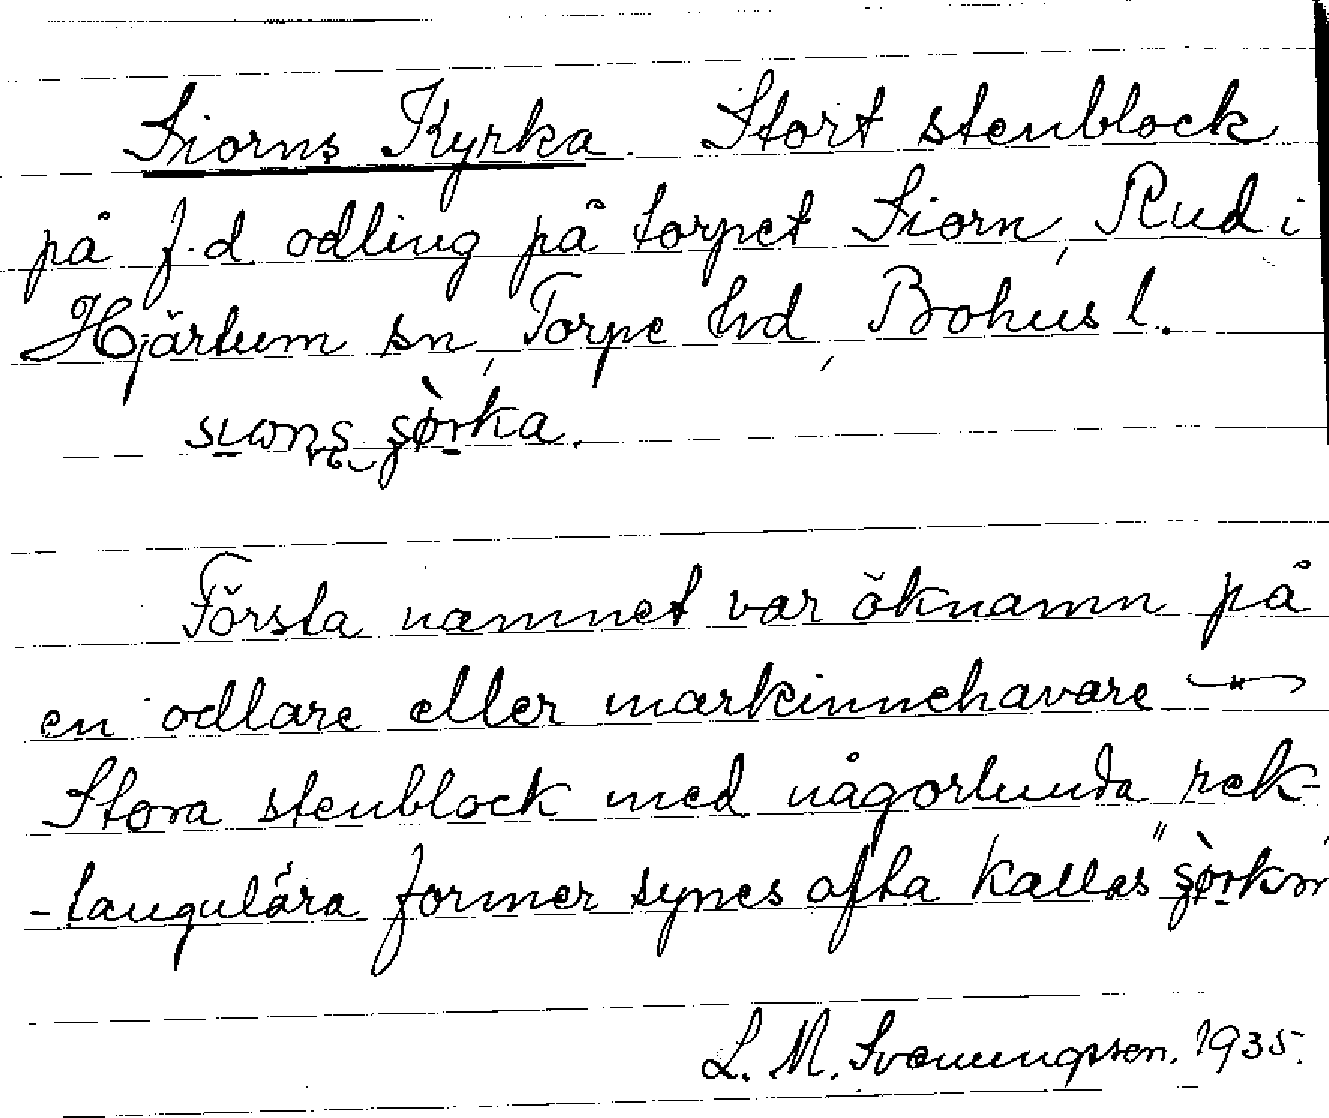 Siorns Kyrka. Stort stenblock
på f.d odling på torpet Siorn, Rud i
Hjärtum sn, Torpe hd, Bohus l.
Första namnet var öknamn på
en odlare eller markinnehavare
Stora stenblock med någorlunda rek-
-tangulära former synes ofta kallas
L. M. Svenungsson. 1935.